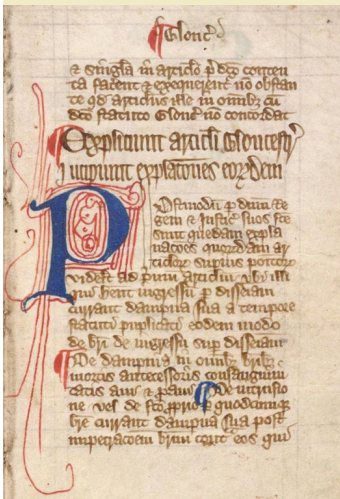 Glouc̃
& singla in articlo p̱dc̃o conten
ta facent & exequerent̃ nõ obstan
te qd̃ articlus ille in om̃ib; cũ
dc̃o statuto Glouc̃ nõ concordat
Expliciunt articli Gloucestr̃
Incipiunt explac̃ones eorꝝdem
Postmodũ p̱ dñm Re
gem & Justic̃ suos fc̃e
sunt quedam expla
nac̃ones quorꝝdam ar
ticlorꝝ supius positorꝝ
videlt̃ ad p̱mũ articlũ vbi illi
qui hent ingressũ p̱ disseiam
currant dampna sua a tempore
statuti puplicati eodem modo
de br̃i de ingressu sup̱ disseiam
De dampnis in om̃ib; br̃ib;
mortis antecessoris consanguini
tatis aui & p̱aui De intrusio
ne vel de fc̃o p̱prio p̱ quodcumq;
br̃e currant dampna sua post
impetrac̃oem br̃ium cont̃ eos qui